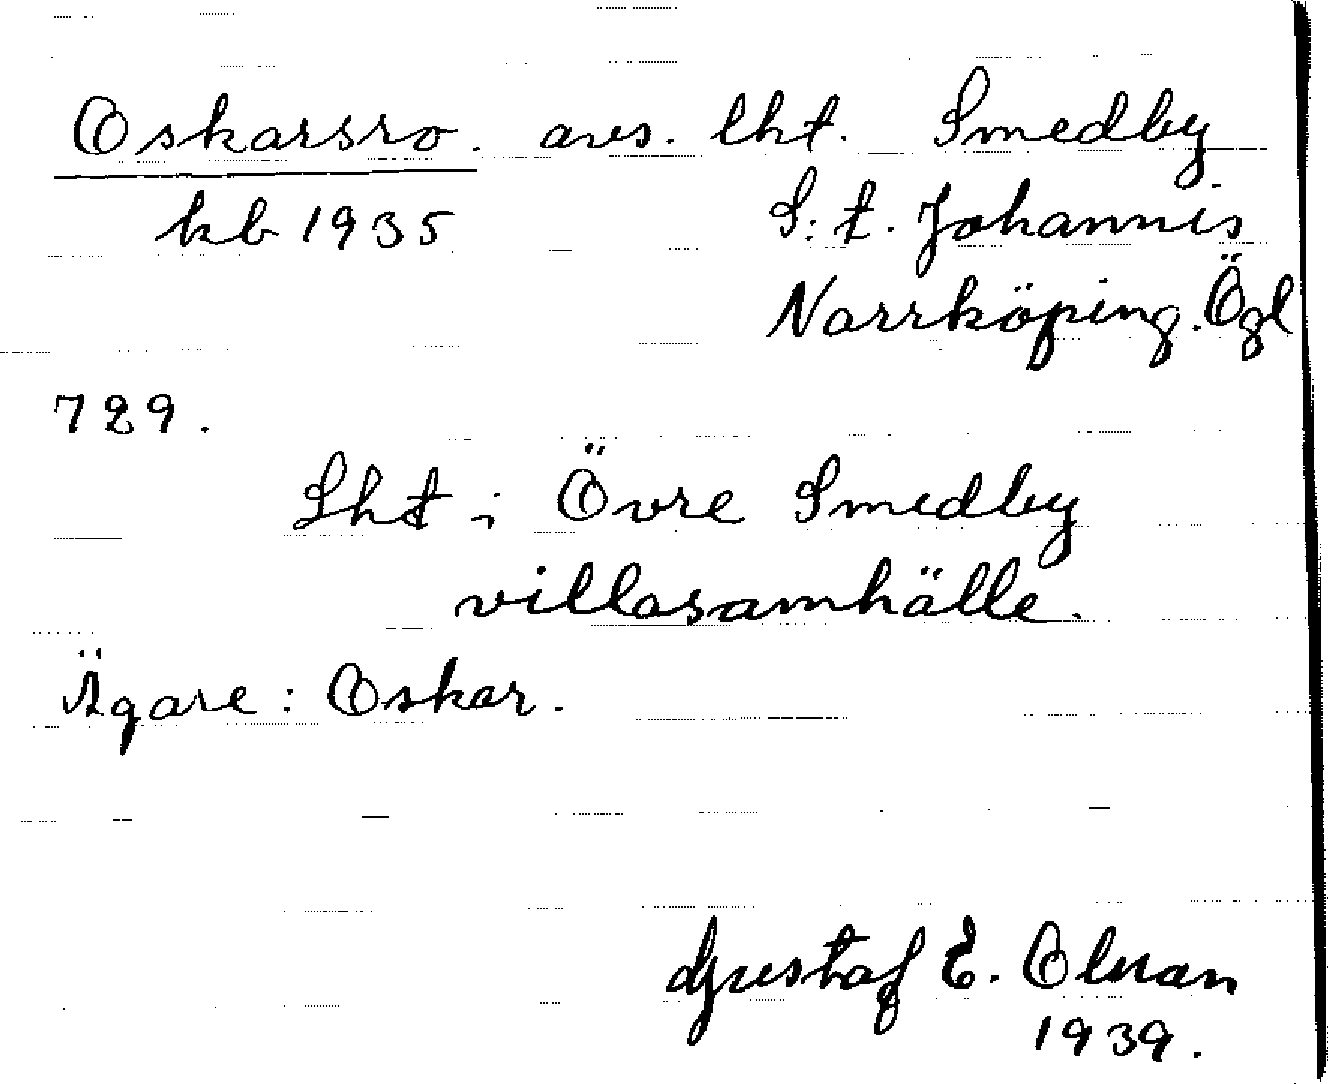 Oskarsro. avs. lht. Smedby
kb 1935 S:t. Johannis
Norrköping. Ögl
729.
Lht i Övre Smedby
villasamhälle.
Ägare: Oskar.
Gustaf E.
1939.